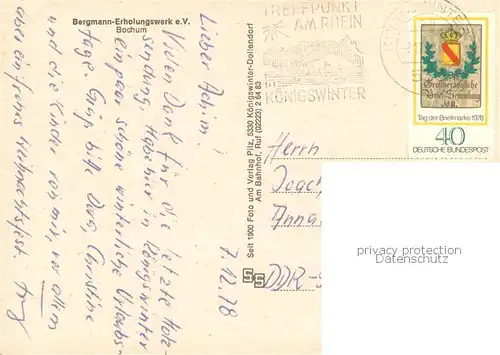 Bergmann-Erholungswerk e.V.
Bochum
7.12.78
Lieber Achim!
Vielen Dank für die letzte Note-
sendung. Habe hier in Königswinter
ein paar schöne winterliche Urlaubs-
tage. Grüß bitte Christine
und die Kinder von mir, vor allem
aber ein frohes Weihnachtsfest.
Seit 1900 Foto und Verlag Pilz, 5330 Königswinter-Dollendorf
Am Bahnhof, Ruf (02223) 2 64 63
TREFFPUNKT
AM RHEIN
KÖNIGSWINTER
Großherzogliche
Tag der Briefmarke 1978
40
DEUTSCHE BUNDESPOST
Herrn
DDR-
privacy protection
Datenschutz